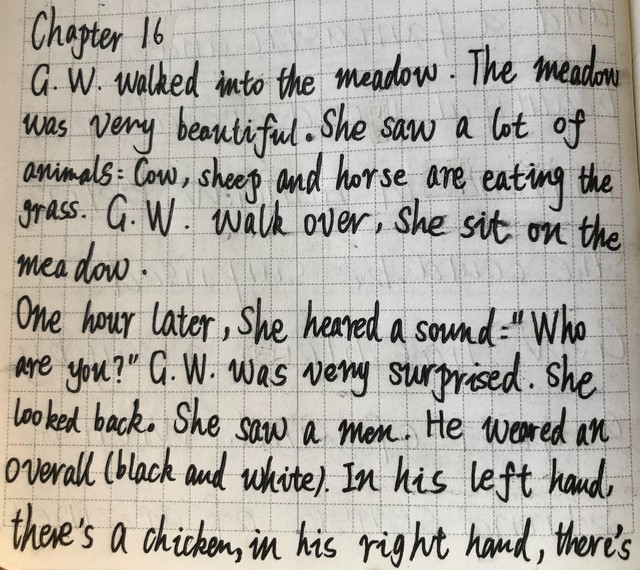 Chapter 16
G. W. walked into the meadow. The meadow
was very beautiful. She saw a lot of
animals: Cow, sheep and horse are eating the
grass. G. W. walk over, she sit on the
meadow.
One hour later, She heared a sound: "Who
are you?" G. W. was very surprised. She
looked back. She saw a men. He weared an
overall (black and white). In his left hand,
there's a chicken, in his right hand, there's